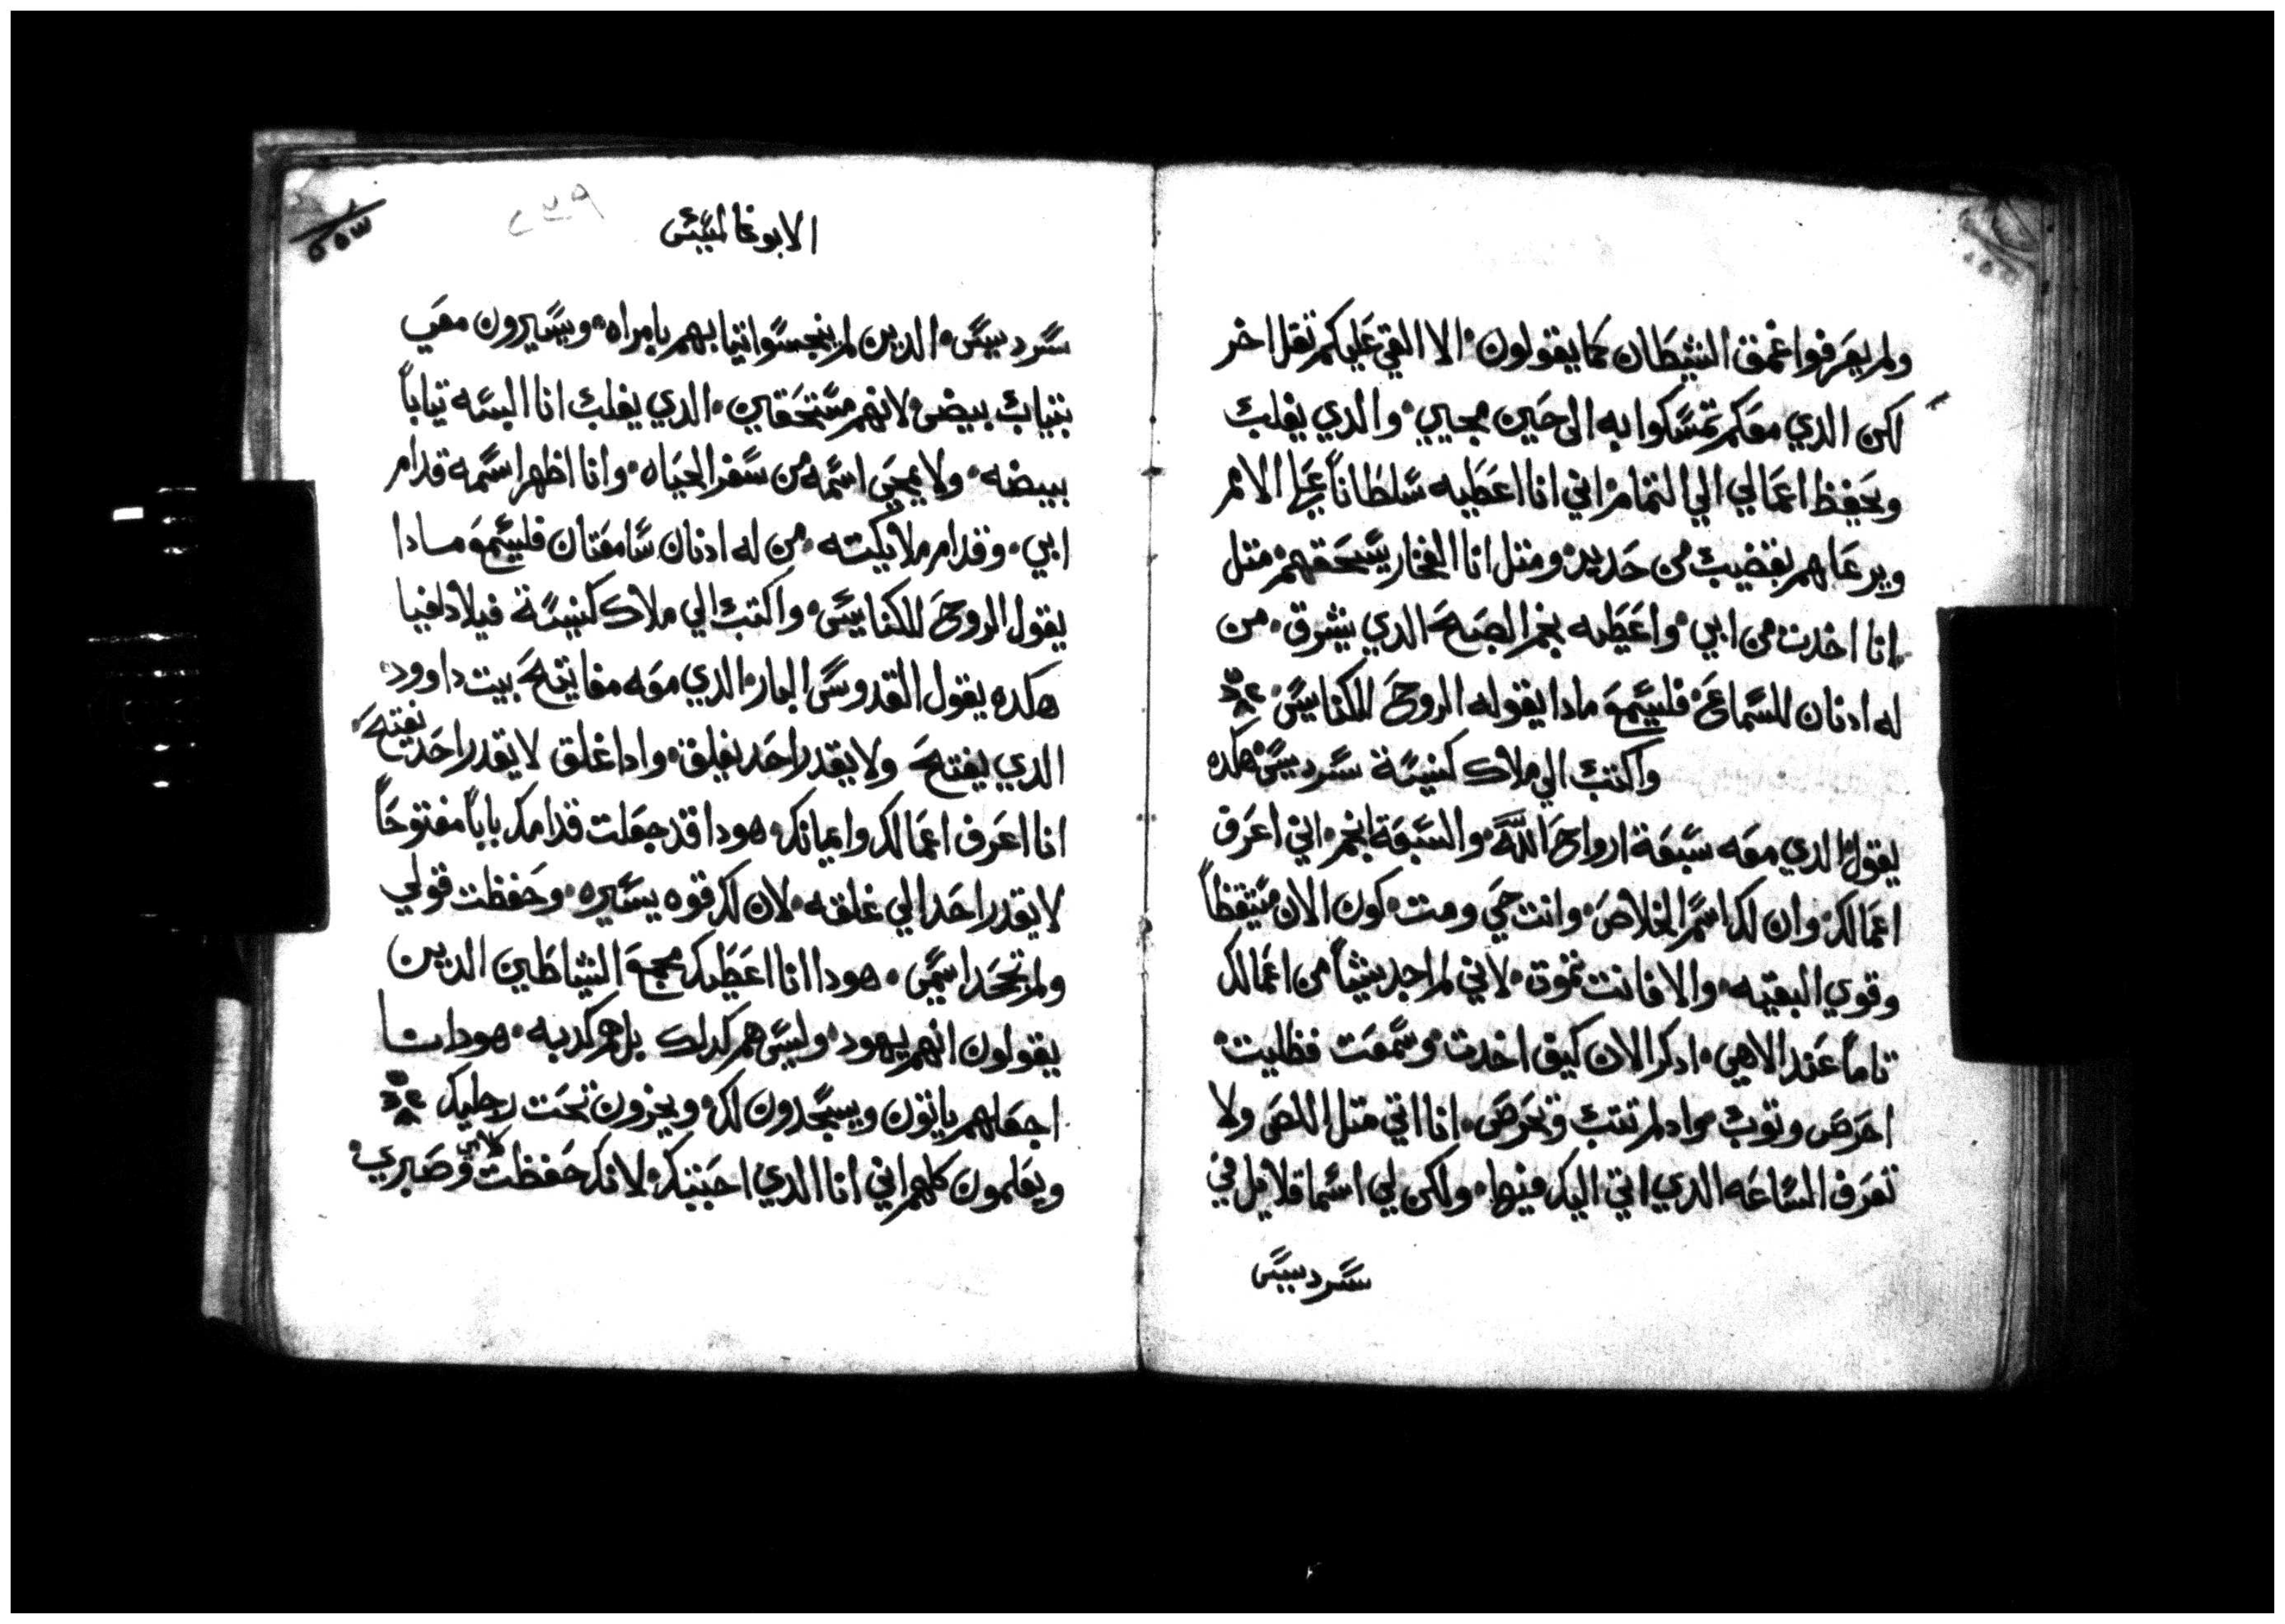 ولم يعرفوا عمق الشيطان كما يقولون الا القي عليكم تقل اخر
لكن الدي معكم تمسكوا به الى حين مجيي والدي يغلب
ويحفظ اعمالي الي التمام اني انا اعطيه سلطانا على الامم
ويرعاهم بقضيب من حديد ومتل انا الفخار يسحقهم متل
انا اخدت من ابي واعطيه نجم الصبح الدي يشرق من
له ادنان للسماع فليسمع مادا يقوله الروح للكنايس
واكتب الي ملاك كنيسة سرديس هكده
يقول الدي معه سبعة ارواح الله والسبعة انجم اني اعرف
اعمالك وان لك اسم الخلاص وانت حي ومت كون الان متيقظا
وقوي البقيه والا فانت تموت لاني لم اجد شيا من اعمالك
تاما عند الاهي ادكر الان كيف اخدت وسمعت فظليت
احرص وتوب واد لم تتب وتحرص انا اتي متل اللص ولا
تعرف الساعه الدي اتي اليك فيها ولكن لي اسما قلايل في
سرديس
٢٣٩
٥٥٣
الابوغالمسيس
سرديس الدين لم ينجسوا تيابهم بامراه ويسيرون معي
بتياب بيض لانهم مستحقين الدي يغلب انا البسه تيابا
بييضه ولا يمحي اسمه من سفر الحياه وانا اظهر اسمه قدام
ابي وقدام ملايكته من له ادنان سامعتان فليسمع مادا
يقول الروح للكنايس واكتب الي ملاك كنيسة فيلادلفيا
هكده يقول القدوس البار الدي معه مفاتيح بيت داوود
الدي يفتح ولا يقدر احد يغلق وادا غلق لا يقدر احد يفتح
انا اعرف اعمالك وايمانك هودا قد جعلت قدامك بابا مفتوحا
لا يقدر احدا لي غلقه لان لك قوه يسيره وحفظت قولي
ولم تجحد اسمي هودا انا اعطيك مجمع الشياطين الدين
يقولون انهم يهود وليس هم كدلك بل هم كدبه هودا نا
اجعلهم ياتون ويسجدون لك ويخرون تحت رجليك
ويعلمون كلهم اني انا الدي احببتك لانك حفظت كلامي وصبري